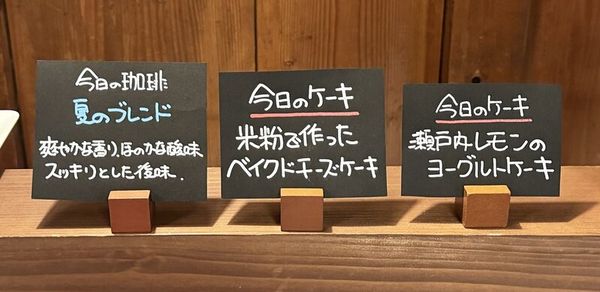 今日の珈琲
夏のブレンド
爽やかな香り、ほのかな酸味
スッキリとした後味.
今日のケーキ
米粉で作った
ベイクドチーズケーキ
今日のケーキ
瀬戸内レモンの
ヨーグルトケーキ